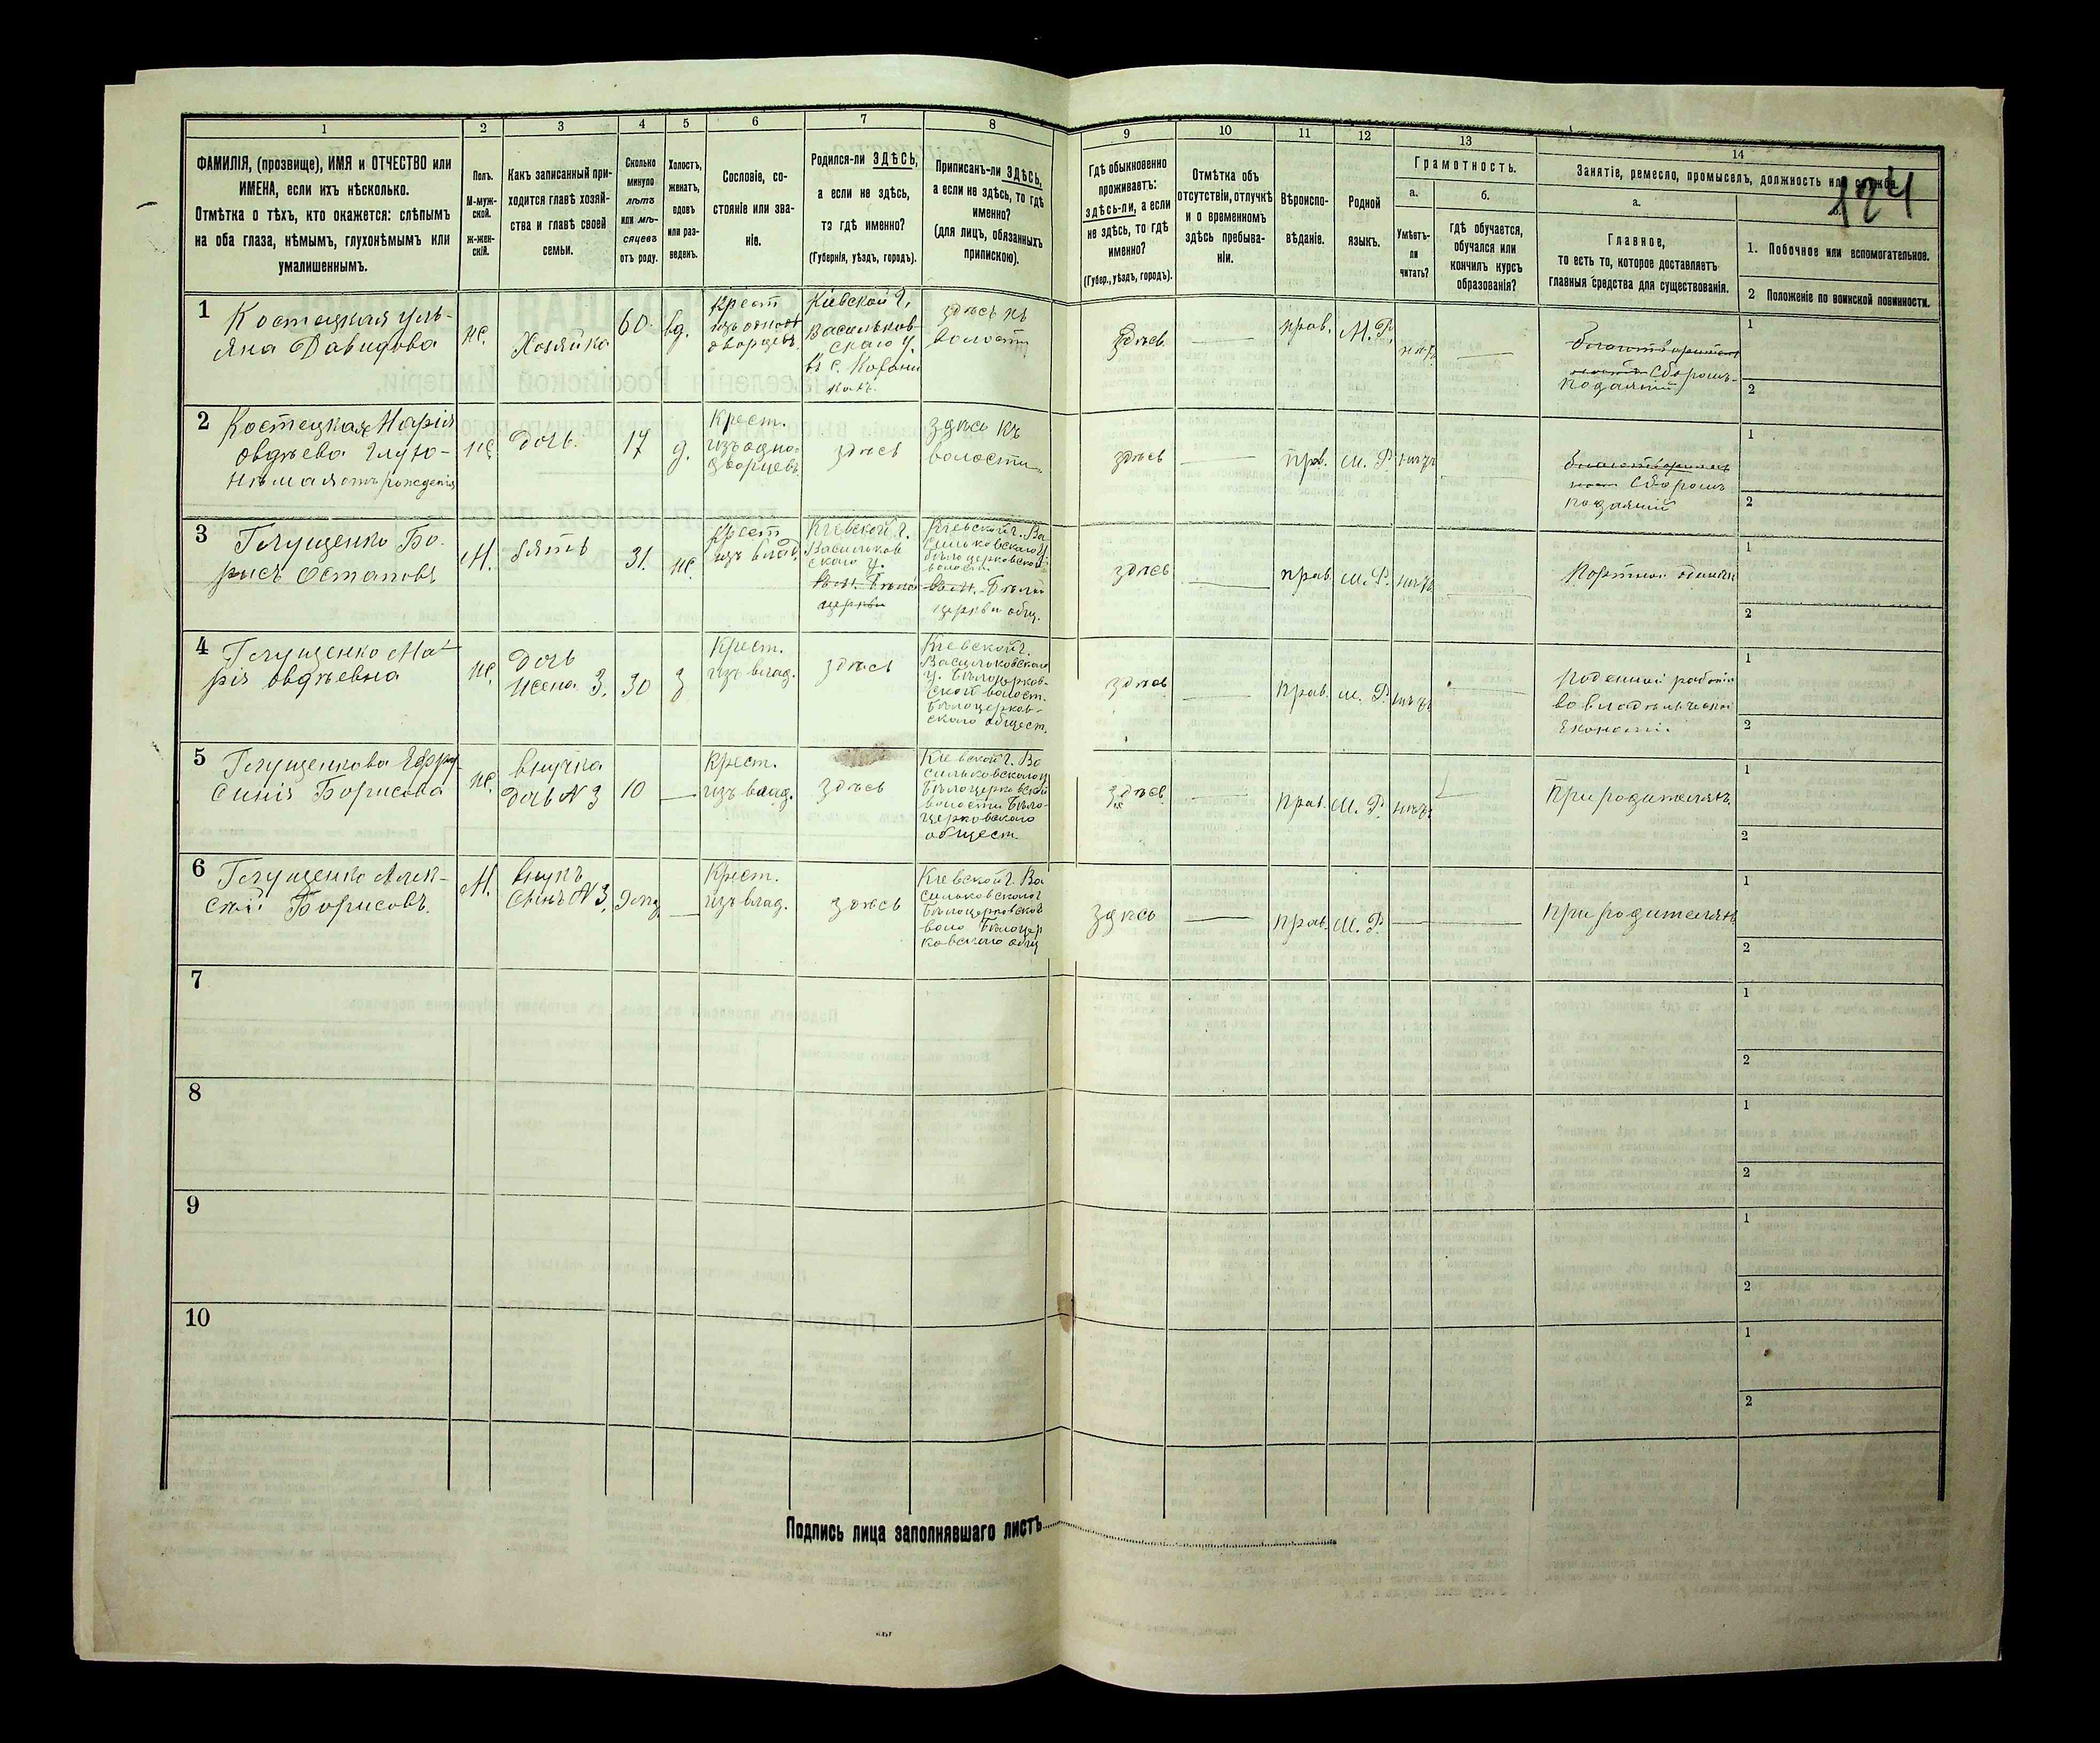 124
1
2
3
4
5
6
7
8
9
10
11
12
13
14
ФАМИЛІЯ, (прозвище), ИМЯ и ОТЧЕСТВО или
ИМЕНА, если ихъ нѣсколько.
Отмѣтка о тѣхъ, кто окажется: слѣпымъ
на оба глаза, нѣмымъ, глухонѣмымъ или
умалишеннымъ.
Полъ.
М-муж-
ской.
Ж-жен-
скій.
Какъ записанный при-
ходится главѣ хозяй-
ства и главѣ своей
семьи.
Сколько
минуло
лѣтъ
или мѣ-
сяцевъ
отъ роду.
Холостъ,
женатъ,
вдовъ
или раз-
веденъ.
Сословіе, со-
стояніе или зва-
ніе.
Родился-ли ЗДѢСЬ,
а если не здѣсь,
то гдѣ именно?
(Губернія, уѣздъ, городъ).
Приписанъ-ли ЗДѢСЬ,
а если не здѣсь, то гдѣ
именно?
(для лицъ, обязанныхъ
припискою).
Гдѣ обыкновенно
проживаетъ:
здѣсь-ли, а если
не здѣсь, то гдѣ
именно?
(Губер., уѣздъ, городъ).
Отмѣтка объ
отсутствіи, отлучкѣ
и о временномъ
здѣсь пребыва-
ніи.
Вѣроиспо-
вѣданіе.
Родной
языкъ.
Грамотность.
а.
Умѣетъ-
ли
читать?
б.
гдѣ обучается,
обучался или
кончилъ курсъ
образованія?
Занятіе, ремесло, промыселъ, должность или служба.
а.
Главное,
то есть то, которое доставляетъ
главныя средства для существованія.
1. Побочное или вспомогательное.
2 Положеніе по воинской повинности.
1
Костецкая Уль-
яна Давидова
же.
Хозяйка
60.
вд.
Крест
изъ одно
дворцевъ
Кіевской г.
Васильков-
скаго у.
въ с.
здѣсь къ
волости
здѣсь
прав.
М.Р.
нѣтъ
Сборомъ
подаяній
1
2
2
Костецкая Марія
Овдѣева Глухо-
нѣмая отъ рожденія
же
Дочь.
17
д.
Крест.
изъ одно-
дворцевъ
здѣсь
здѣсь къ
волости
здѣсь
прав.
М. Р.
нѣтъ
Сборомъ
подаяній
1
2
3
Глущенко Бо-
рисъ Остаповъ
М.
Зять
31.
же.
Крест
изъ влад.
Кіевской г.
Васильков
скаго у.
въ м. Бѣлой
церкви
Кіевской г. Ва
сильковскаго у.
бѣлоцерковской
волост.
въ м. Бѣлой
церкви общ.
здѣсь
прав.
М. Р.
нѣтъ
Портной
1
2
4
Глущенко Ма-
рія Овдѣевна
же.
Дочь
Жена 3.
30
з
Крест.
изъ влад.
здѣсь
Кіевской г.
Васильковскаго
у. Бѣлоцерков-
ской волост.
Бѣлоцерков-
скаго общест.
здѣсь
прав.
М. Р.
нѣтъ
во владѣльческой
Економіи
1
2
5
Глущенкова Ефро
синія Борисова
же.
внучка
Дочь N 3
10
Крест.
изъ влад.
здѣсь
Кіевской г. Ва
сильковскаго у
Бѣлоцерковской
волости Бѣло-
церковскаго
общест.
здѣсь
прав.
М. Р.
нѣтъ
При родителяхъ
1
2
6
Глущенко Алек-
сѣй Борисовъ.
М.
внукъ
Сынъ N 3.
9 мц
Крест.
изъ влад.
здѣсь
Кіевской г. Ва
сильковскаго у
Бѣлоцерковской
воло Бѣлоцер
ковскаго общ
здѣсь
прав.
М. Р.
При родителяхъ
1
2
7
1
2
8
1
2
9
1
2
10
1
2
Подпись лица заполнявшаго листъ